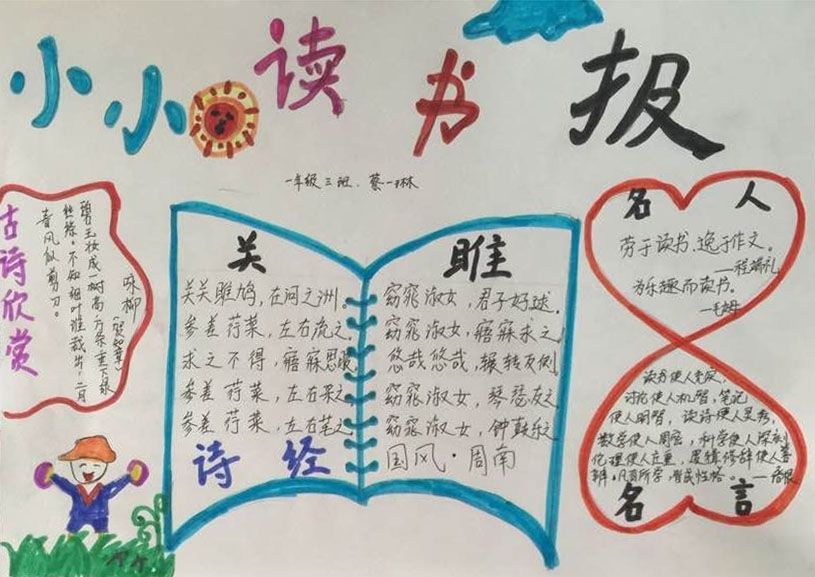 小小读书报
一年级三班、蔡一琳
古诗欣赏
咏柳
(贺知章)
碧玉妆成一树高万条垂下绿
丝绦。不知细叶谁裁出,二月
春风似剪刀。
关雎
关关雎鸠,在河之洲。窈窕淑女,君子好逑。
参差荇菜,左右流之。窈窕淑女,寤寐求之
求之不得,寤寐思服,悠哉悠哉,辗转反侧
参差荇菜,左右采之。窈窕淑女,琴瑟友之
参差荇菜,左右芼之。窈窕淑女,钟鼓乐之
诗经
国风·周南
名人
劳于读书、逸于作文。
—程端礼
为乐趣而读书。
—毛姆
读书使人充实,
讨论使人机智,笔记
使人明智,读诗使人灵秀,
数学使人周密,科学使人深刻,
伦理使人庄重,逻辑修辞使人善
辩,凡有所学,皆成性格。—培根
名言